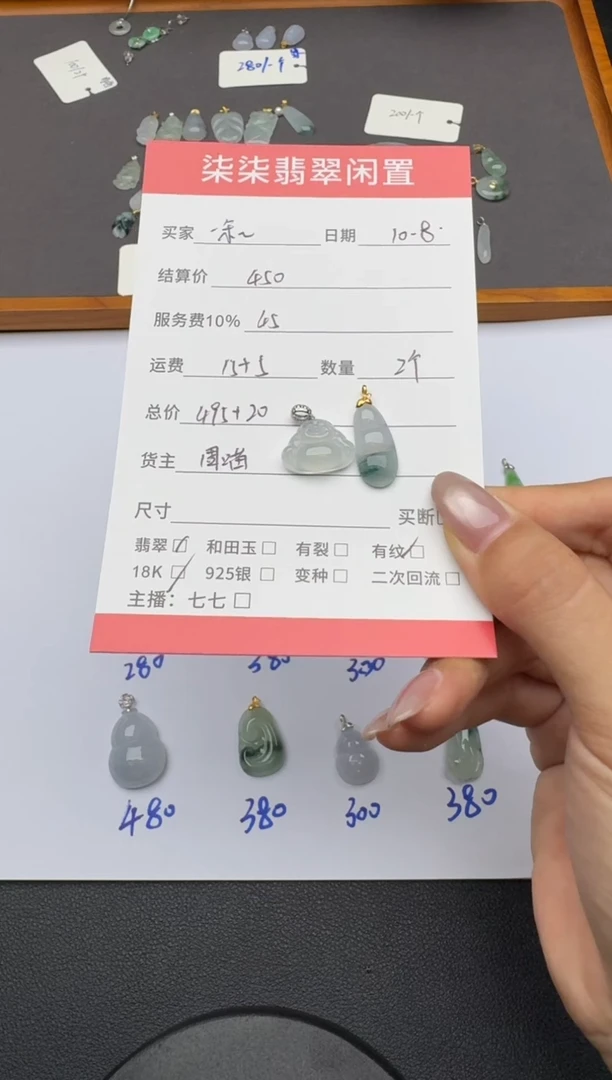 280/-个
200/-个
柒柒翡翠闲置
买家 日期 10-8.
结算价 450
服务费10% 45
运费 15+5 数量 2个
总价 495+20
货主
尺寸 买断
翡翠 和田玉 有裂 有纹
18K 925银 变种 二次回流
主播：七七
280 380 300
480 380 300 380